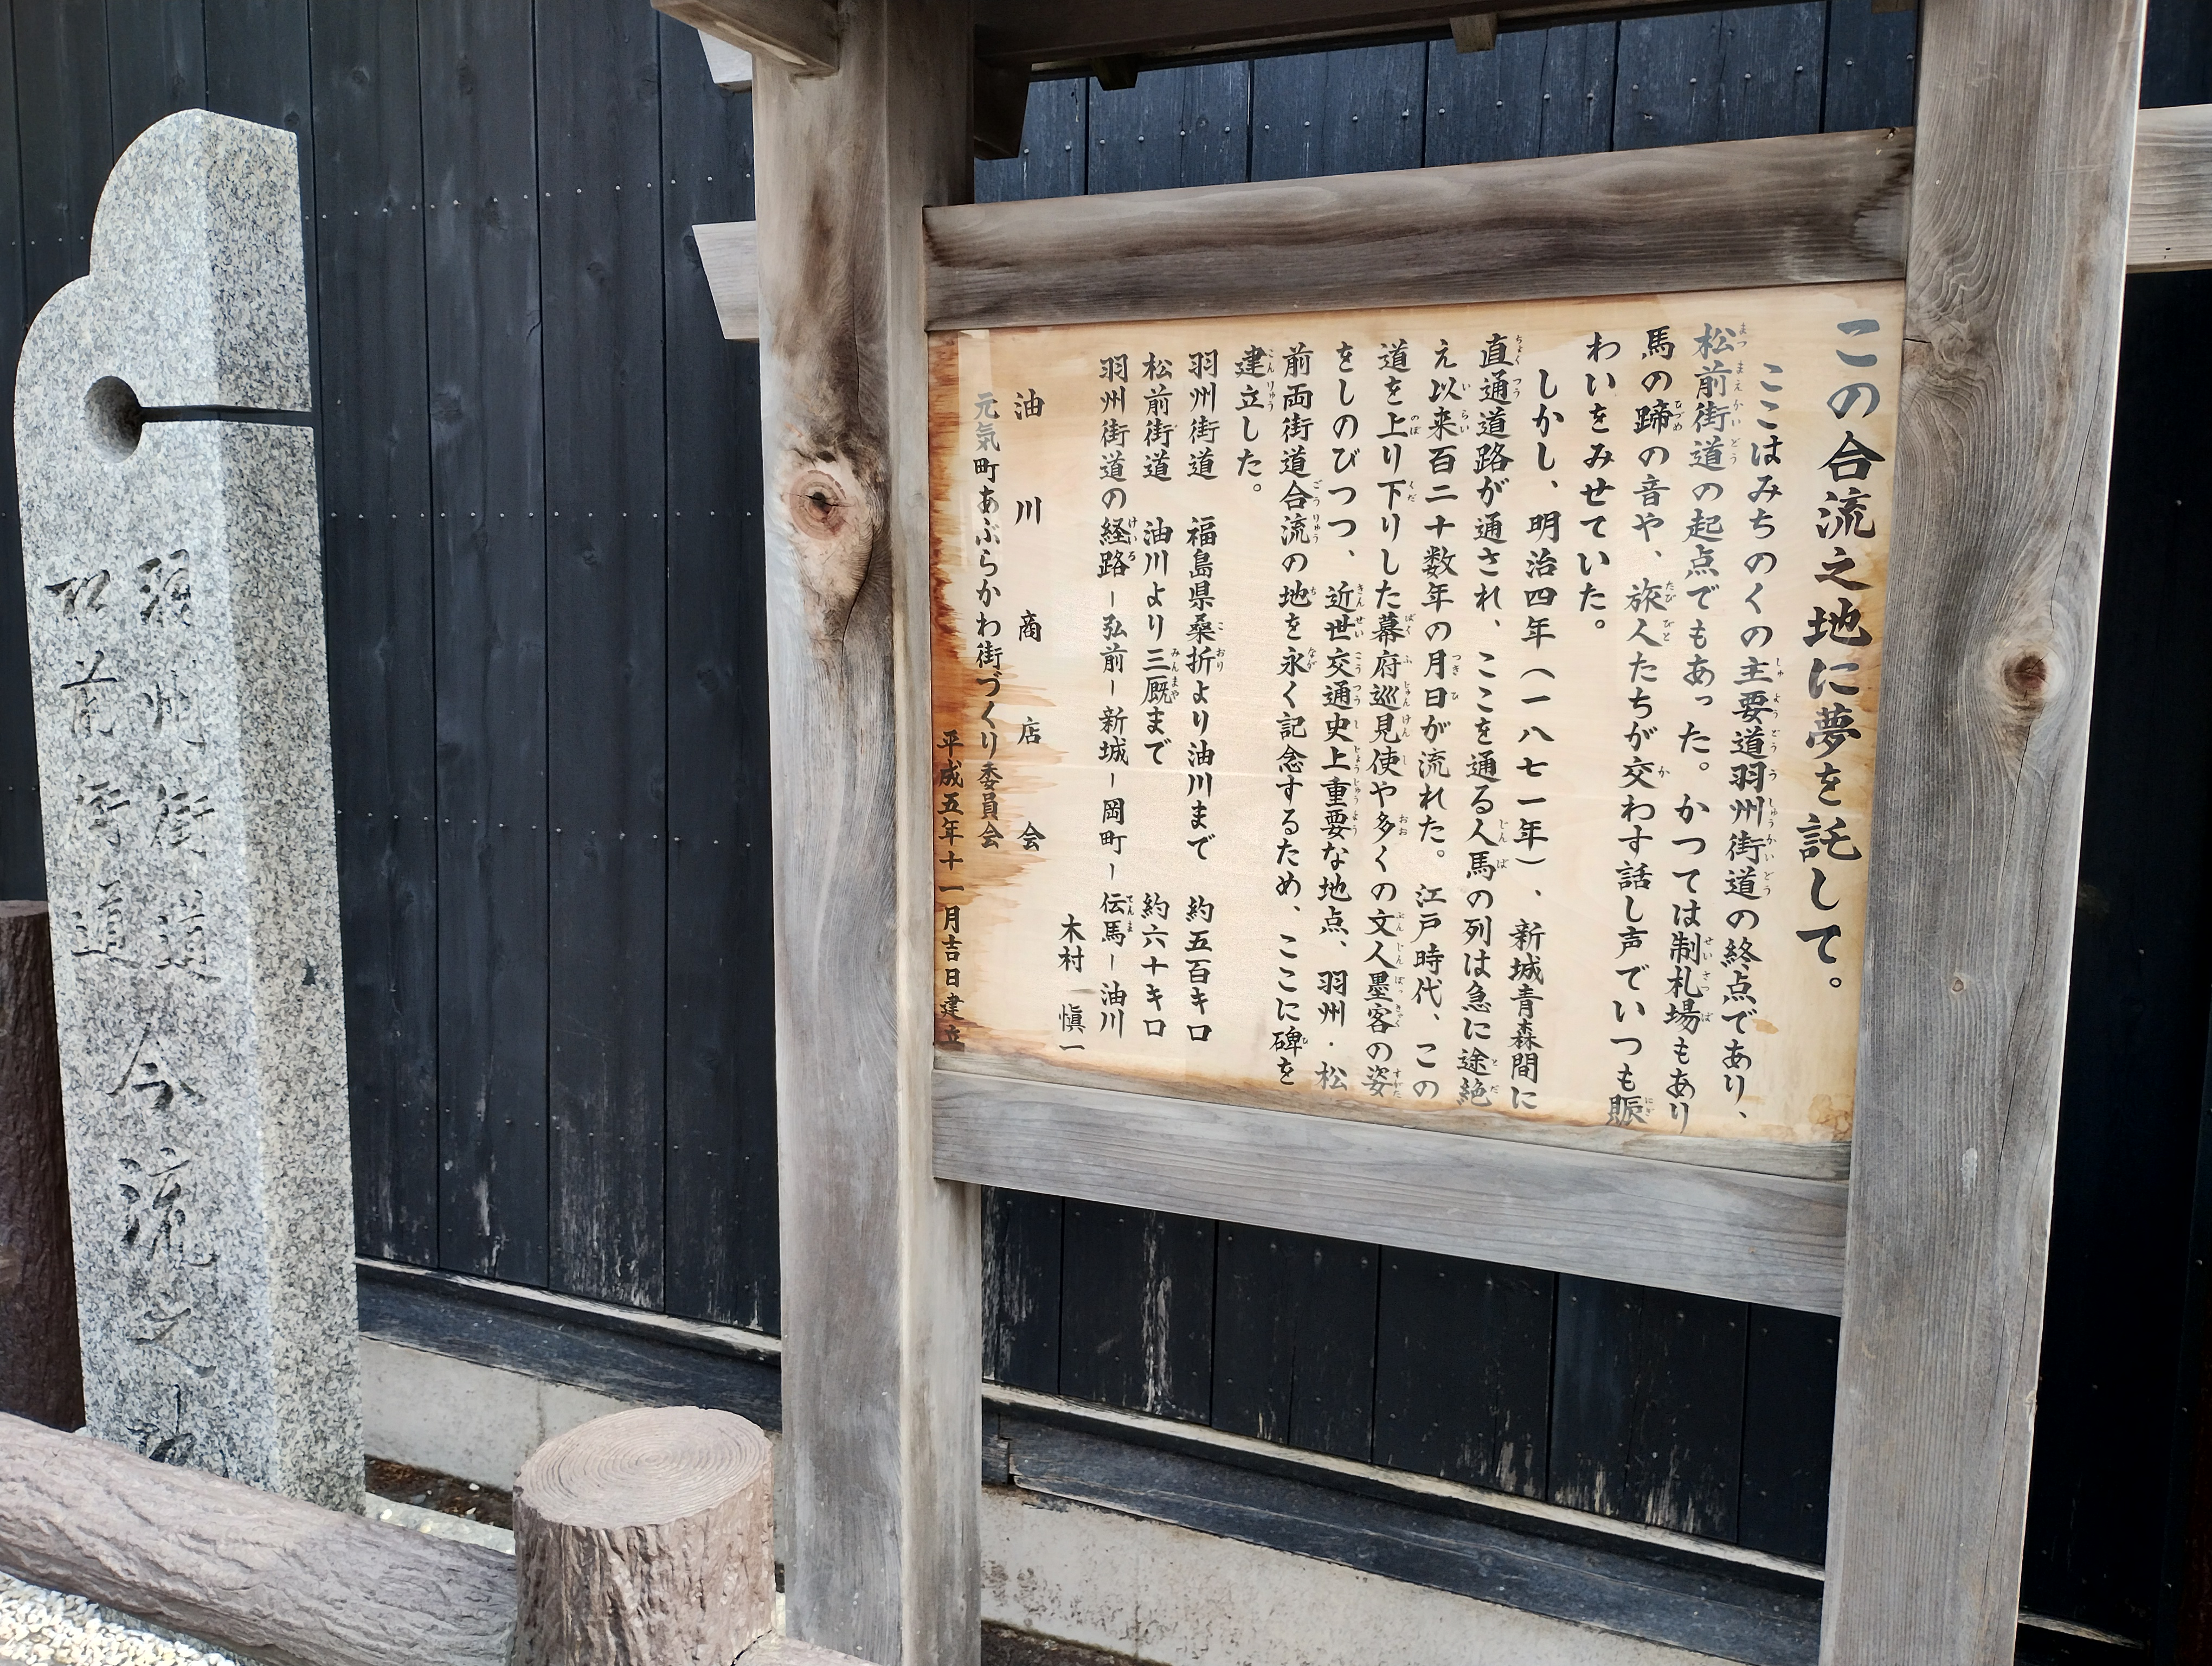 この合流之地に夢を託して。
ここはみちのくの主要道羽州街道の終点であり、
松前街道の起点でもあった。かつては制札場もあり
馬の蹄の音や、旅人たちが交わす話し声でいつも賑
わいをみせていた。
しかし、明治四年(一八七一年)、新城青森間に
直通道路が通され、ここを通る人馬の列は急に途絶
え以来百二十数年の月日が流れた。江戸時代、この
道を上り下りした幕府巡見使や多くの文人墨客の姿
をしのびつつ、近世交通史上重要な地点、羽州・松
前両街道合流の地を永く記念するため、ここに碑を
建立した。
羽州街道 福島県桑折より油川まで 約五百キロ
松前街道 油川より三厩まで 約六十キロ
羽州街道の経路ー弘前ー新城ー岡町ー伝馬ー油川
木村 慎一
油川商店会
元気町あぶらかわ街づくり委員会
平成五年十一月吉日建立
羽州街道
松前街道
合流之地